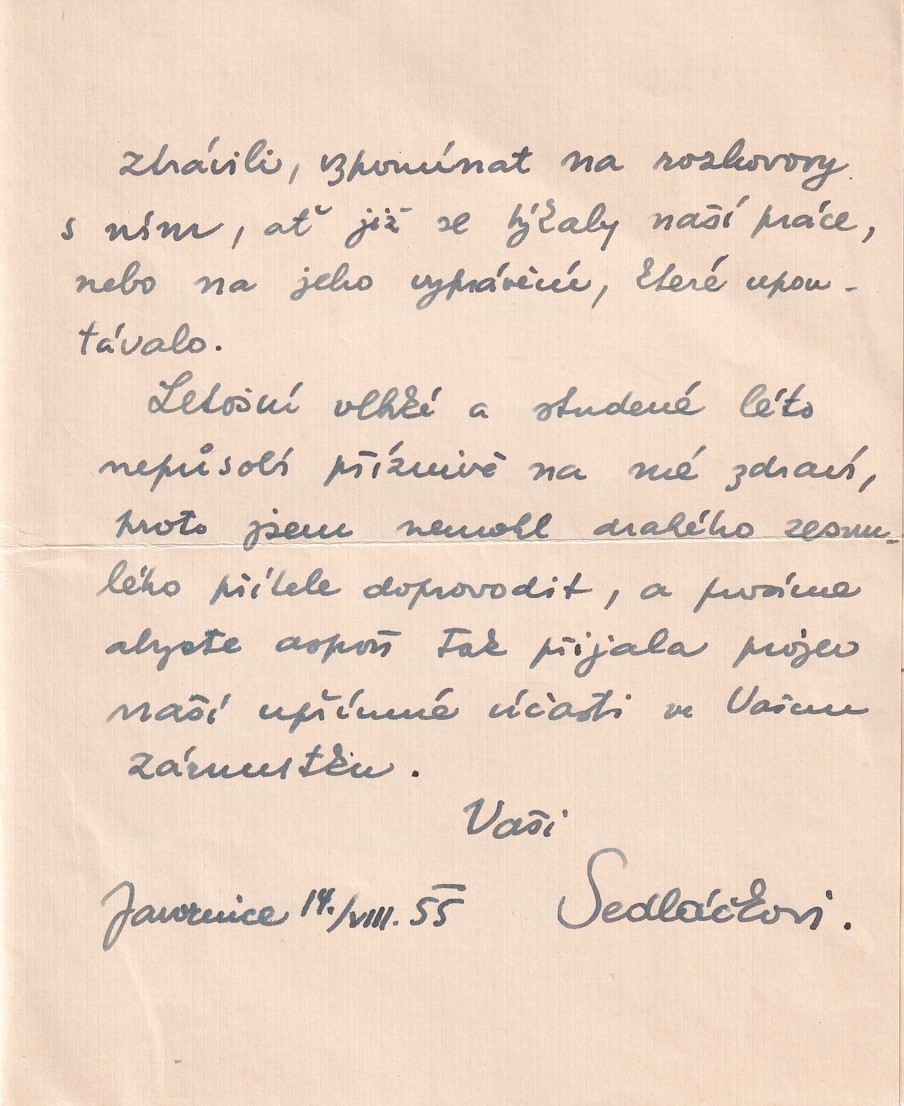 ztrávili, vzpomínat na rozhovory
s ním, ať již se týkaly naší práce,
nebo na jeho vyprávění, které upou-
távalo.
Letošní vlhké a studené léto
nepůsobí příznivě na mé zdraví,
proto jsem nemohl drahého zesnu-
lého přítele doprovodit, a prosíme
abyste aspoň tak přijala projev
naší upřímné účasti ve Vašem
zármutku.
Vaši
Javornice 14./VIII. 55 Sedláčkovi.